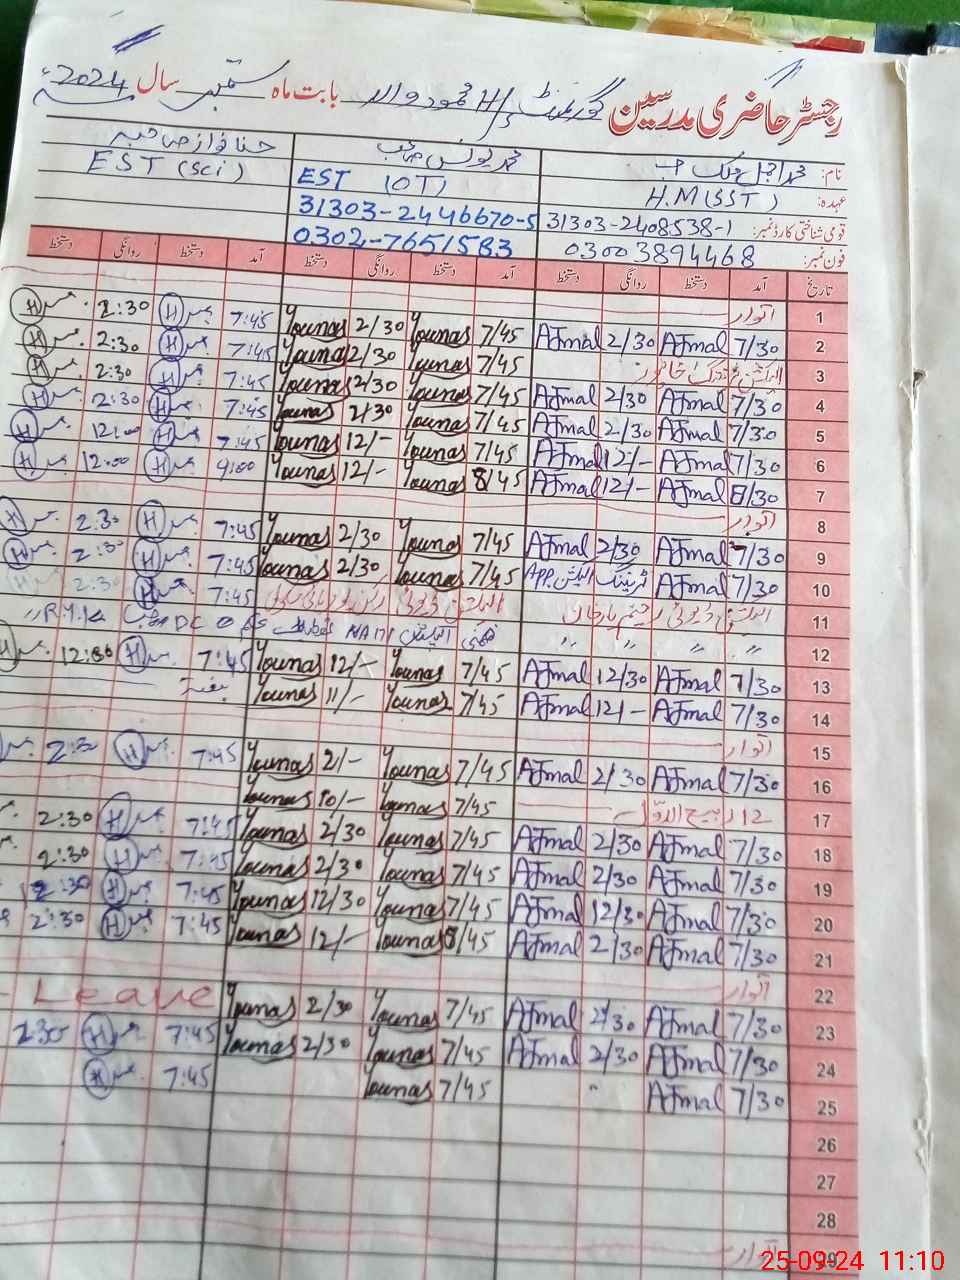 رجسٹر حاضری مدرسین گورنمنٹ H/S محمود والا بابت ماہ ستمبر سال 2024ء
نام: محمد اجمل صاحب محمد یونس صاحب حنا نواز صاحبہ
عہدہ: H.M (SST) EST (OT) EST (Sci)
قومی شناختی کارڈ نمبر: 31303-2408538-1 31303-2446670-5
فون نمبر: 03003894468 0302-7651583
تاریخ آمد دستخط روانگی دستخط آمد دستخط روانگی دستخط آمد دستخط روانگی دستخط
1 اتوار
2 7/30 Ajmal 2/30 Ajmal 7/45 Younas 2/30 Younas 7:45 H 2:30 H
3 7/45 Younas 2/30 Younas 7:45 H 2:30 H
4 7/30 Ajmal 2/30 Ajmal 7/45 Younas 2/30 Younas 7:45 H 2:30 H
5 7/30 Ajmal 2/30 Ajmal 7/45 Younas 2/30 Younas 7:45 H 2:30 H
6 7/30 Ajmal 12/- Ajmal 7/45 Younas 12/- Younas 7:45 H 12:00 H
7 8/30 Ajmal 12/- Ajmal 8/45 Younas 12/- Younas 9:00 H 12:00 H
8 اتوار
9 7/30 Ajmal 2/30 Ajmal 7/45 Younas 2/30 Younas 7:45 H 2:30 H
10 7/30 Ajmal ٹریننگ الیکشن APP 7/45 Younas 2/30 Younas 7:45 H 2:30 H
11 الیکشن ڈیوٹی رحیم یار خان الیکشن ڈیوٹی 7:45 H 2:30 H
12 " " " " ضمنی الیکشن NA 171 DC R.Y.K
13 7/30 Ajmal 12/30 Ajmal 7/45 Younas 12/- Younas 7:45 H 12:00 H
14 7/30 Ajmal 12/- Ajmal 7/45 Younas 11/- Younas ہفتہ
15 اتوار
16 7/30 Ajmal 2/30 Ajmal 7/45 Younas 2/- Younas 7:45 H 2:30
17 12 ربیع الاوّل 7/45 Younas 10/- Younas
18 7/30 Ajmal 2/30 Ajmal 7/45 Younas 2/30 Younas 7:45 H 2:30
19 7/30 Ajmal 2/30 Ajmal 7/45 Younas 2/30 Younas 7:45 H 2:30
20 7/30 Ajmal 12/30 Ajmal 7/45 Younas 12/30 Younas 7:45 H 12:30
21 7/30 Ajmal 2/30 Ajmal 8/45 Younas 12/- Younas 7:45 H 2:30
22 اتوار
23 7/30 Ajmal 2/30 Ajmal 7/45 Younas 2/30 Younas Leave
24 7/30 Ajmal 2/30 Ajmal 7/45 Younas 2/30 Younas 7:45 H 2:30
25 7/30 Ajmal 7/45 Younas 7:45 H
26
27
28
29 اتوار
25-09-24 11:10